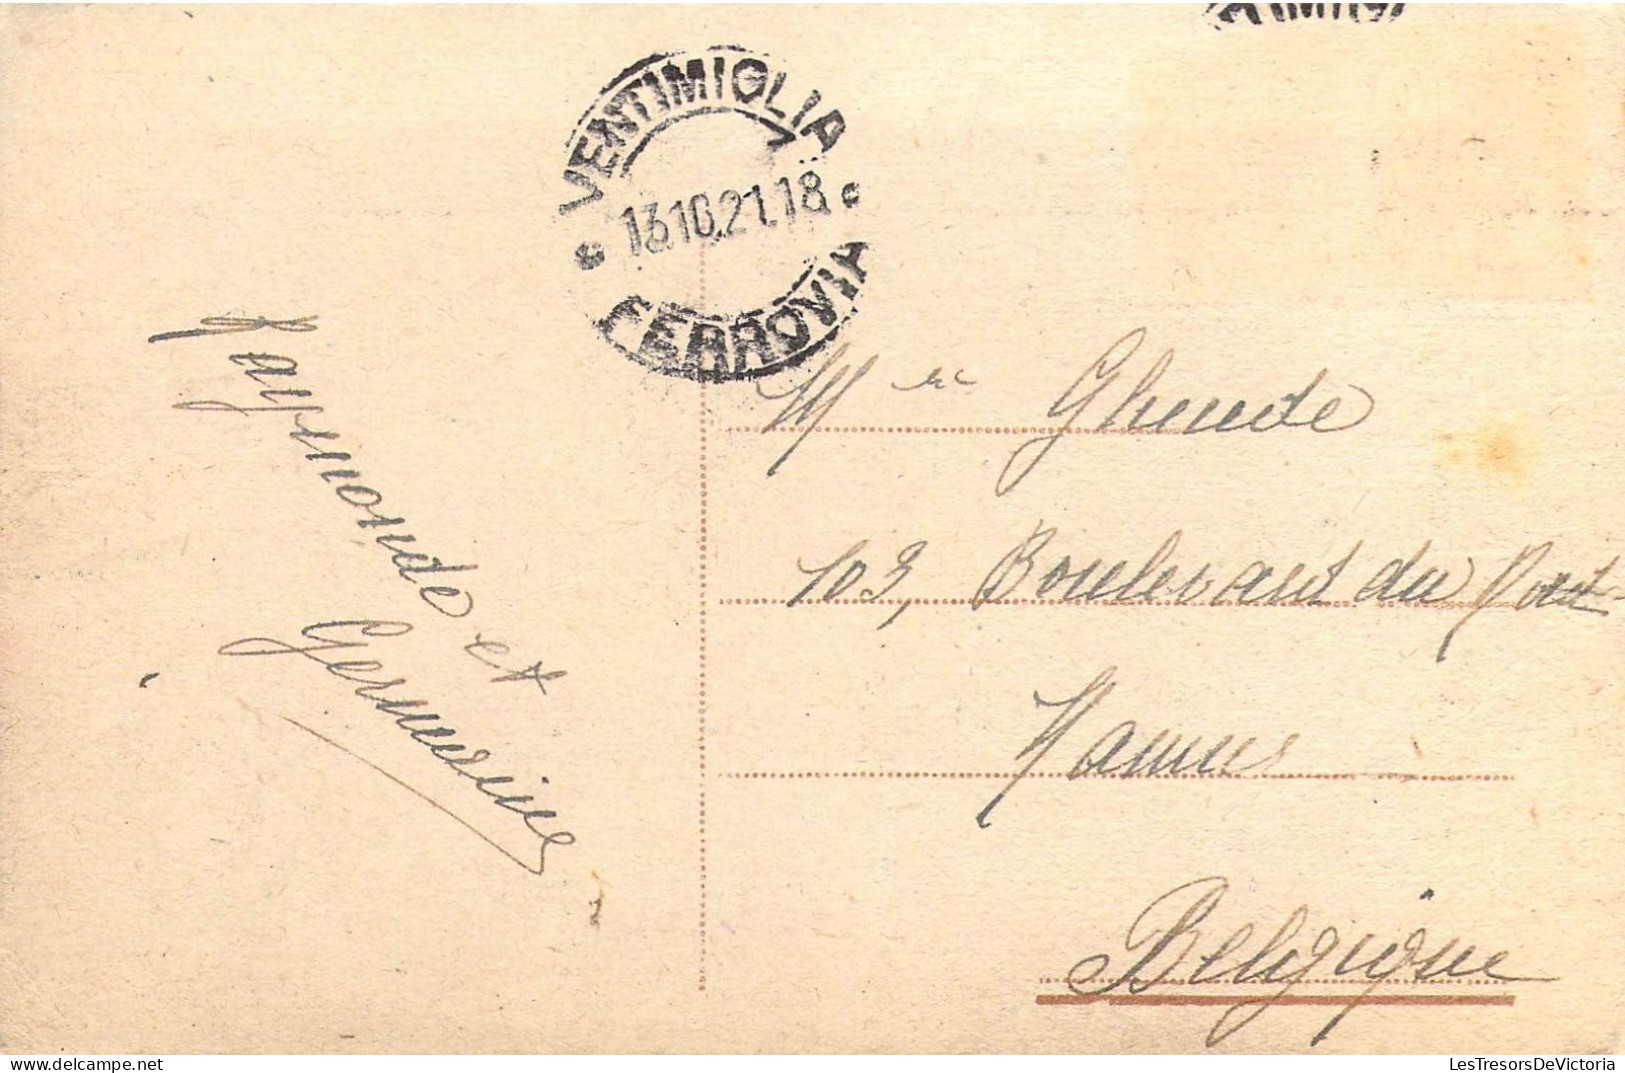 VENTIMIGLIA
13.10.21.18
FERROVIA
Raymonde et
Germaine
Mr
103, Boulevard du Nord
Namur
Belgique
LesTresorsDeVictoria